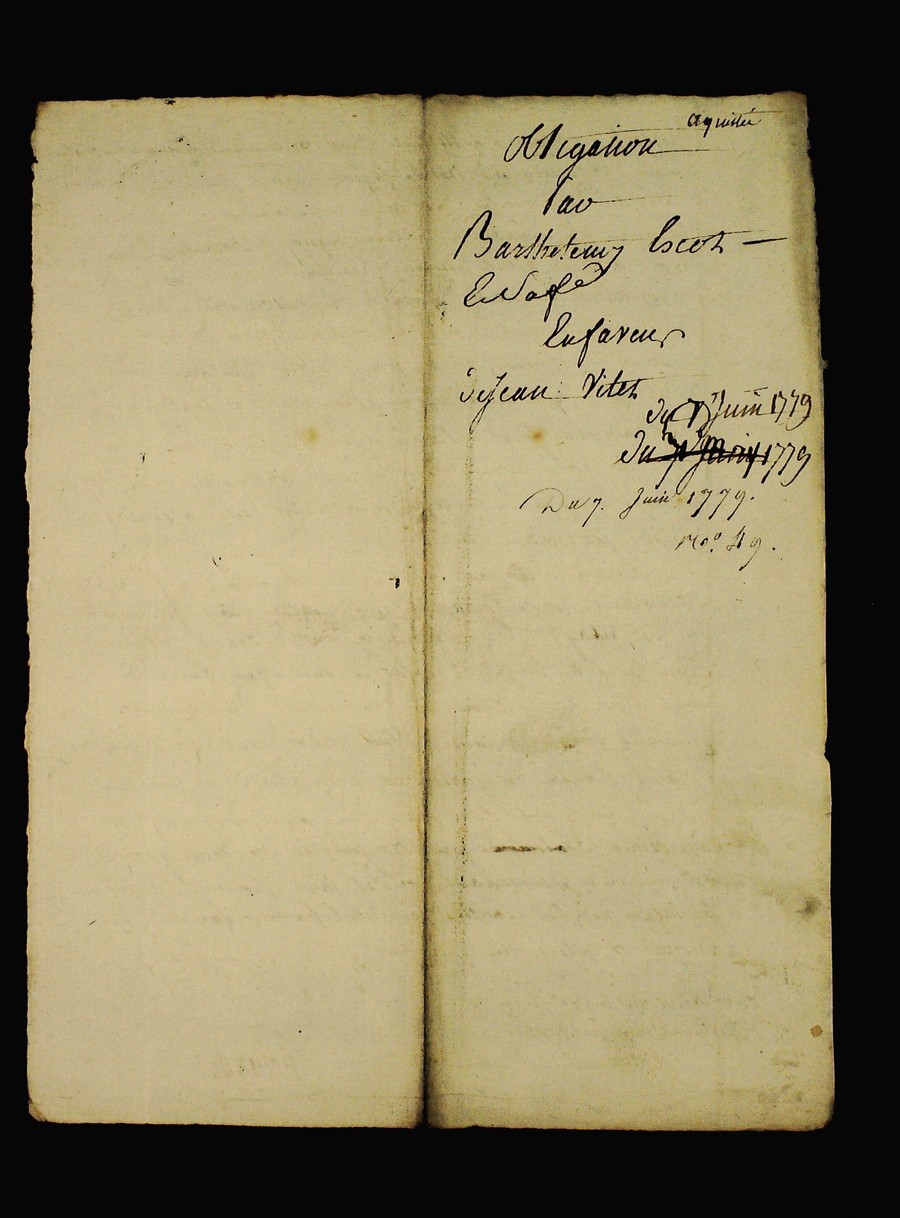 aquitté
obligation
Par
Barthelemy Escot —
Et Sa fe
En faveur
de Jean Vitet
du 7 Juin 1779
du 7 Juin 1779
Du 7. Juin 1779.
No. 49.